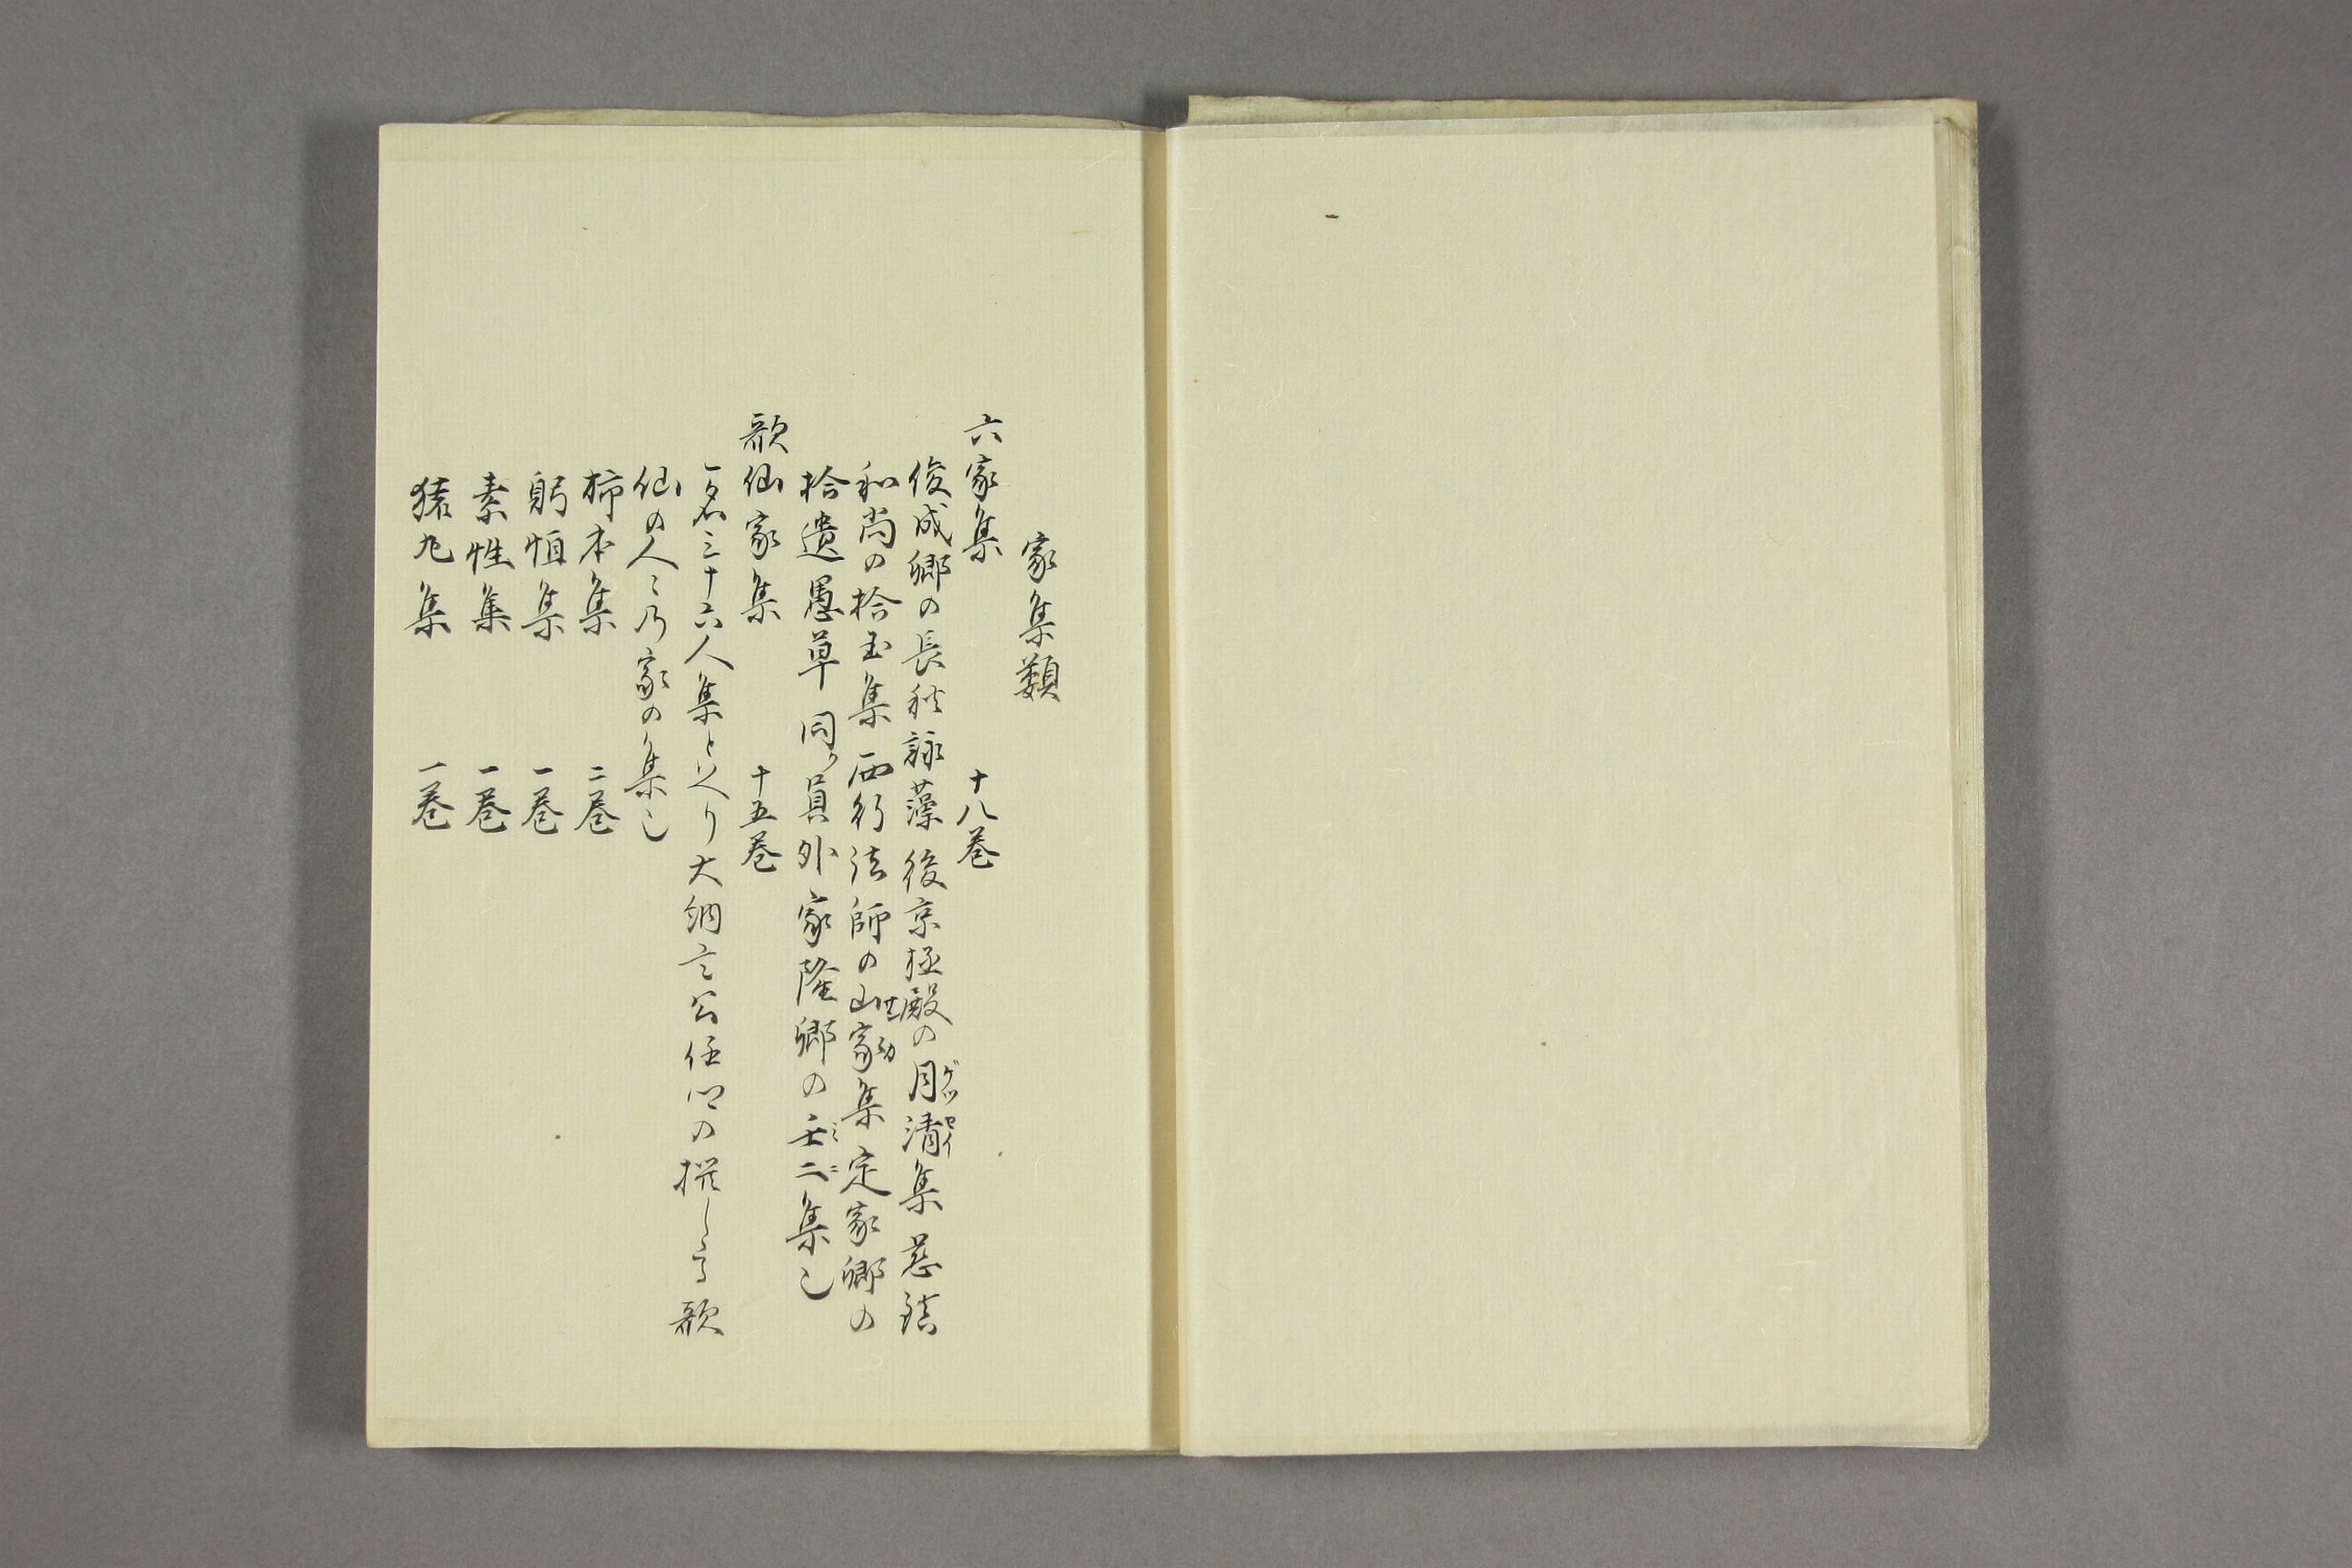 家集類
六家集　十八巻
俊成卿の長秋詠藻 後京極殿の月清集 慈鎮
ゲツセイ
和尚の拾玉集 西行法師の山家集 定家卿の
拾遺愚草 同員外 家隆卿の壬二集也
ミニ
歌仙家集　十五巻
一名三十六人集と云り大納言公任卿の撰し給ふ歌
仙の人々乃家の集也
柿本集　二巻
躬恒集　一巻
素性集　一巻
猿丸集　一巻